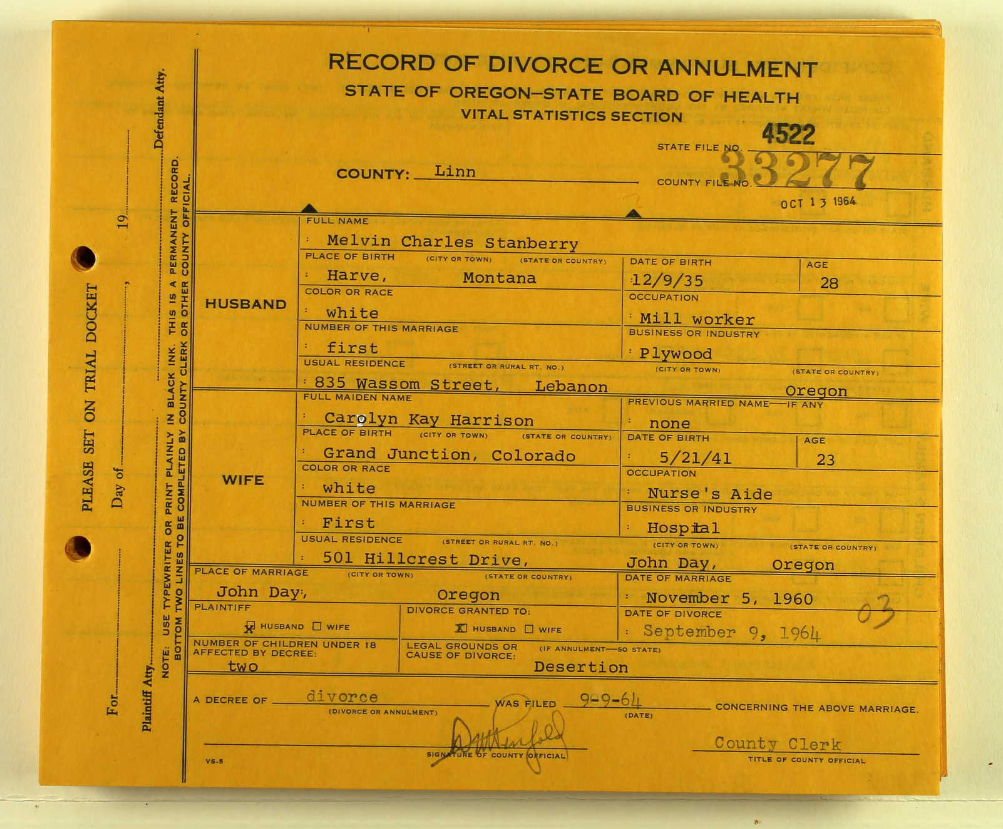 RECORD OF DIVORCE OR ANNULMENT
STATE OF OREGON—STATE BOARD OF HEALTH
VITAL STATISTICS SECTION
STATE FILE NO. 4522
COUNTY: Linn
COUNTY FILE NO. 33277
OCT 13 1964
HUSBAND
FULL NAME
: Melvin Charles Stanberry
PLACE OF BIRTH (CITY OR TOWN) (STATE OR COUNTRY) DATE OF BIRTH AGE
: Harve, Montana :12/9/35 28
COLOR OR RACE OCCUPATION
: white : Mill worker
NUMBER OF THIS MARRIAGE BUSINESS OR INDUSTRY
: first : Plywood
USUAL RESIDENCE (STREET OR RURAL RT. NO.) (CITY OR TOWN) (STATE OR COUNTRY)
: 835 Wassom Street, Lebanon Oregon
WIFE
FULL MAIDEN NAME PREVIOUS MARRIED NAME—IF ANY
: Carolyn Kay Harrison : none
PLACE OF BIRTH (CITY OR TOWN) (STATE OR COUNTRY) DATE OF BIRTH AGE
: Grand Junction, Colorado : 5/21/41 23
COLOR OR RACE OCCUPATION
: white : Nurse's Aide
NUMBER OF THIS MARRIAGE BUSINESS OR INDUSTRY
: First : Hospital
USUAL RESIDENCE (STREET OR RURAL RT. NO.) (CITY OR TOWN) (STATE OR COUNTRY)
: 501 Hillcrest Drive, John Day, Oregon
PLACE OF MARRIAGE (CITY OR TOWN) (STATE OR COUNTRY) DATE OF MARRIAGE
John Day, Oregon : November 5, 1960
PLAINTIFF DIVORCE GRANTED TO: DATE OF DIVORCE
X HUSBAND WIFE X HUSBAND WIFE : September 9, 1964 03
NUMBER OF CHILDREN UNDER 18 AFFECTED BY DECREE: LEGAL GROUNDS OR CAUSE OF DIVORCE: (IF ANNULMENT—SO STATE)
two Desertion
A DECREE OF divorce WAS FILED 9-9-64 CONCERNING THE ABOVE MARRIAGE.
(DIVORCE OR ANNULMENT) (DATE)
County Clerk
VS-5 SIGNATURE OF COUNTY OFFICIAL TITLE OF COUNTY OFFICIAL
PLEASE SET ON TRIAL DOCKET
For Day of , 19
Plaintiff Atty. Defendant Atty.
NOTE: USE TYPEWRITER OR PRINT PLAINLY IN BLACK INK. THIS IS A PERMANENT RECORD.
BOTTOM TWO LINES TO BE COMPLETED BY COUNTY CLERK OR OTHER COUNTY OFFICIAL.